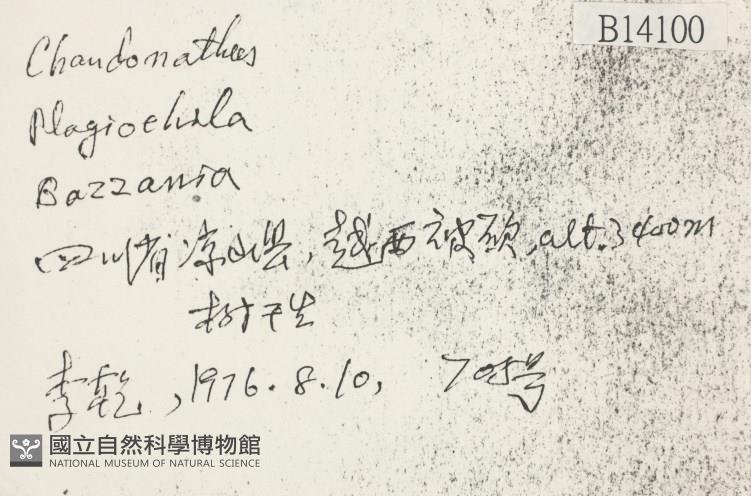 B14100
Chandonathus
Plagiochila
Bazzania
四川省凉山县,越西被颈,alt.3400m
树干生
李乾,1976.8.10, 705号
國立自然科學博物館
NATIONAL MUSEUM OF NATURAL SCIENCE